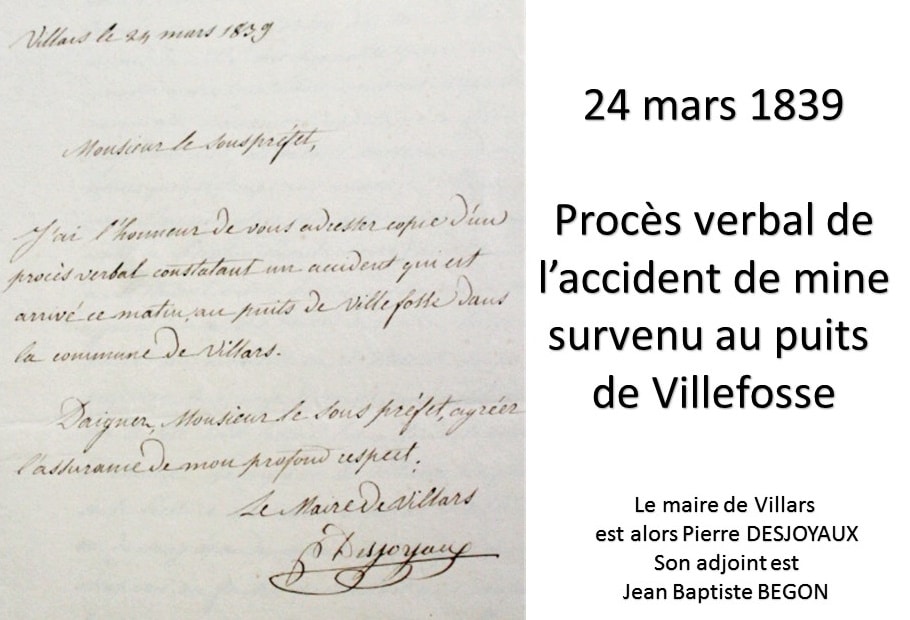 Villars le 24 mars 1839
Monsieur le sous préfet,
J'ai l'honneur de vous adresser copie d'un
procès verbal constatant un accident qui est
arrivé ce matin, au puits de Villefosse dans
la commune de Villars.
Daigner, Monsieur le sous préfet, agréer
l'assurance de mon profond respect.
Le Maire de Villars
Desjoyaux
24 mars 1839
Procès verbal de
l'accident de mine
survenu au puits
de Villefosse
Le maire de Villars
est alors Pierre DESJOYAUX
Son adjoint est
Jean Baptiste BEGON